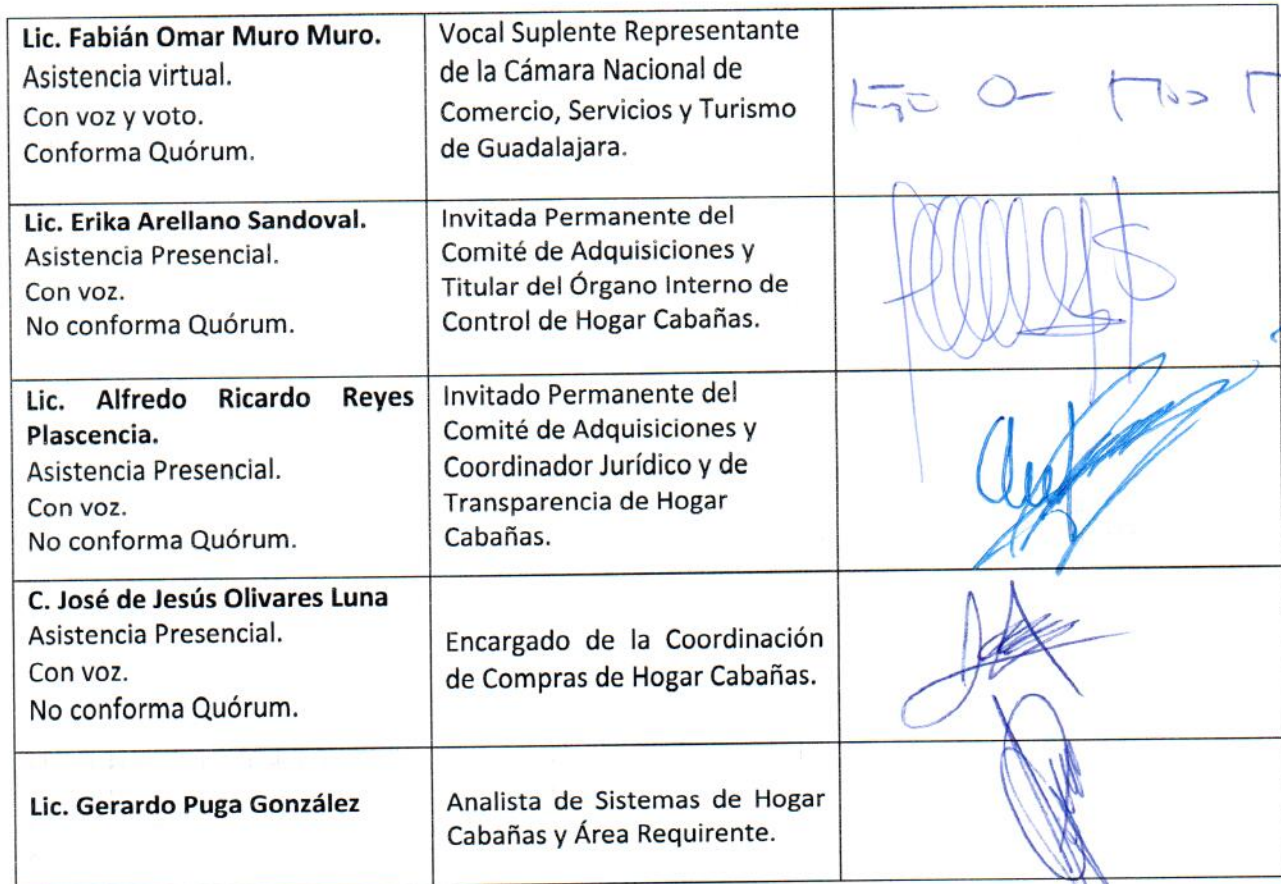 Lic. Fabián Omar Muro Muro.
Asistencia virtual.
Con voz y voto.
Conforma Quórum.
Vocal Suplente Representante
de la Cámara Nacional de
Comercio, Servicios y Turismo
de Guadalajara.
Lic. Erika Arellano Sandoval.
Asistencia Presencial.
Con voz.
No conforma Quórum.
Invitada Permanente del
Comité de Adquisiciones y
Titular del Órgano Interno de
Control de Hogar Cabañas.
Lic. Alfredo Ricardo Reyes
Plascencia.
Asistencia Presencial.
Con voz.
No conforma Quórum.
Invitado Permanente del
Comité de Adquisiciones y
Coordinador Jurídico y de
Transparencia de Hogar
Cabañas.
C. José de Jesús Olivares Luna
Asistencia Presencial.
Con voz.
No conforma Quórum.
Encargado de la Coordinación
de Compras de Hogar Cabañas.
Lic. Gerardo Puga González
Analista de Sistemas de Hogar
Cabañas y Área Requirente.